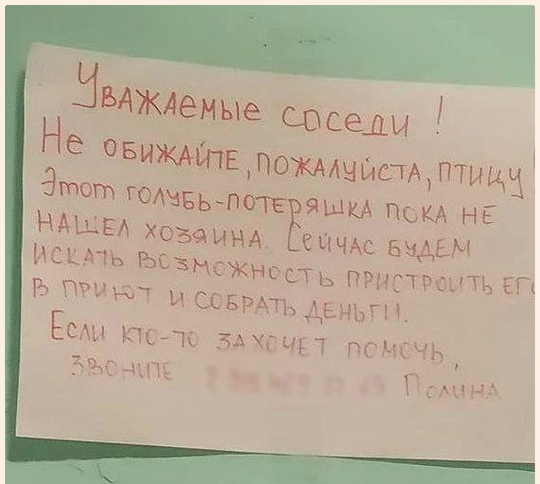 Уважаемые соседи!
Не обижайте, пожалуйста, птицу!
Этот голубь-потеряшка пока не
нашел хозяина. Сейчас будем
искать возможность пристроить его
в приют и собрать деньги.
Если кто-то захочет помочь,
звоните Полина